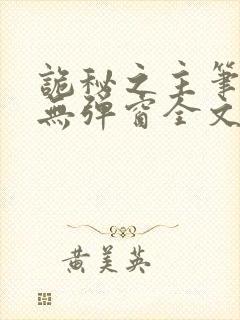 詭秘之主筆
無彈窗全文
黃美英